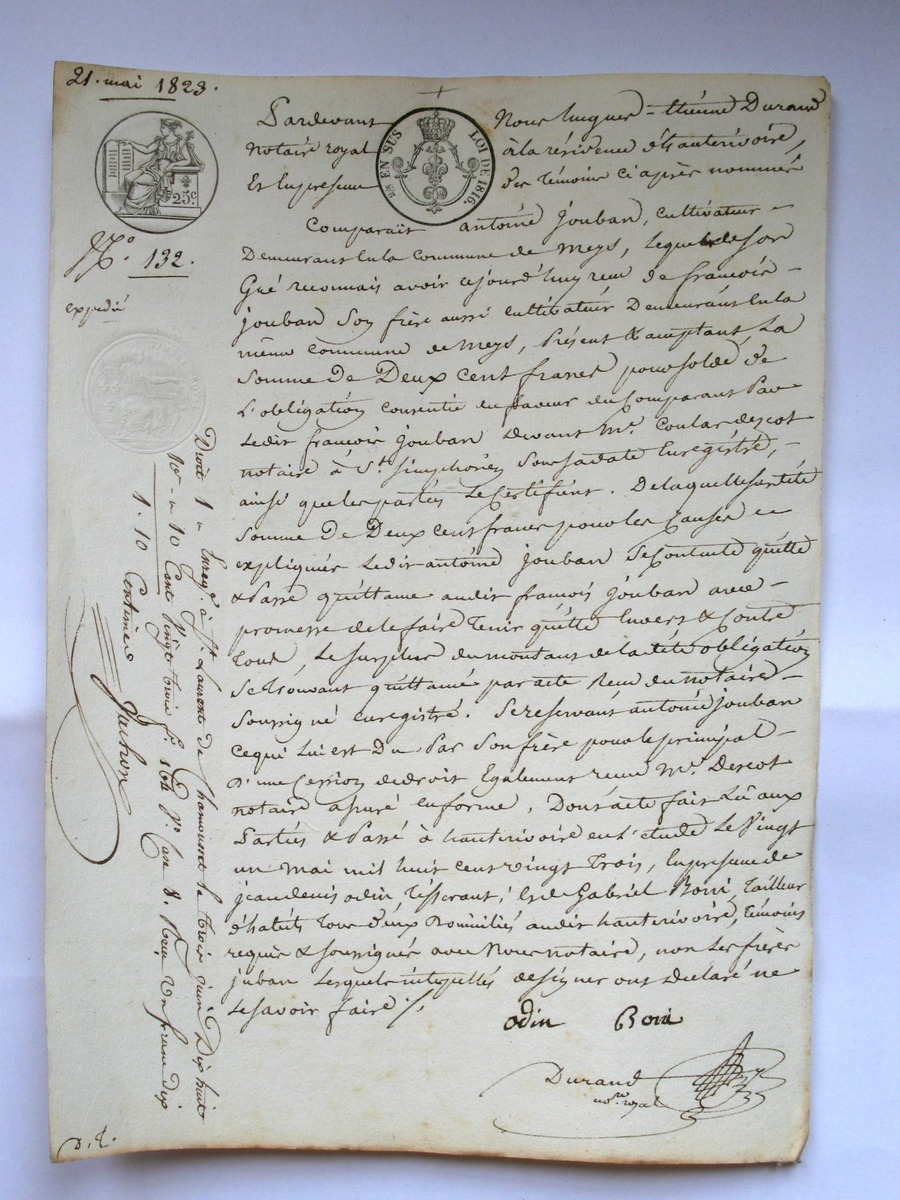 21. mai 1823.
Pardevant Nous hugues = étiénne Durand
notaire royal à la résidence d'hautérivoire,
Et En presence des témoins ci après nommés
EN SUS LOI DE 1816.
25c
Comparait antoine Jouban, cultivateur =
N.o 132.
Demeurant En la Commune de Meys, Lequel de son
Gré reconnait avoir cejourd'huy recu de francois =
expedié
jouban Son frère aussi cultivateur Demeurant En la
même Commune de Meys, Présent & acceptant, La
Somme De Deux Cent francs pour solde de
L'obligation consentie en faveur du Comparant Par
Ledit francois jouban devant M.e Coular descot
notaire à S.t Simphorien Sous sa date Enregistré, =
ainsi que les parties Le Certifient. De laquelle susdite
Somme de Deux cent francs pour les Causes =
expliquées Ledit antoine jouban Se Contente quitte
& Passe quittance audit francois Jouban avec =
promesse de le faire tenir quitte Envers & Contre
Tous, Le surplus du montant de la dite obligation
Se trouvant quittancé par acte Recu du notaire =
Soussigné enregistré. Se reservant antoine jouban
Ce qui Lui est Du Par Son frère pour le principal =
D'une Cession de droit Egalement recue M.e Descot
notaire Dont acte fait Lu aux
Parties & Passé à hauterivoire en L'étude Le Vingt
un Mai mil huit cent vingt trois, En presence de
jean denis odin, tisserant, & de Gabriel Boni, tailleur
d'habits tous deux Domiciliés audit hauterivoire, témoins
requis & soussignés avec Nous notaire, non Les frères
juban Lesquels interpellés de signer ont Declaré ne
Le savoir faire ./.
odin Boni
Durand
no.re royal
Droit 1 "
10.e " 10
1. 10
Enreg.é à S.t Laurent de Chamousset le trois juin Dix huit
Cent vingt trois f.o 164 V.o Case 8. Recu Un franc dix
Centimes
D. L.